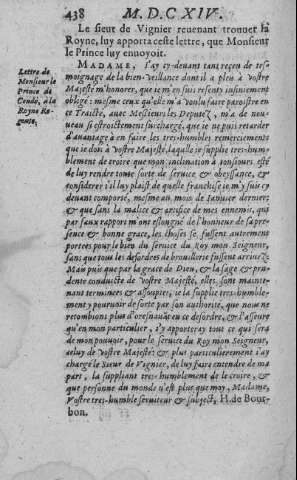 438 M. D. C XIV.
Le sieur de Vignier reuenant trouuer la
Royne, luy apporta ceste lettre, que Monsieur
le Prince luy enuoyoit.
Lettre de
Monsieur le
Prince de
Condé, à la
Royne Re-
gente.
MADAME, i'ay cy-deuant tant reçeu de tes-
moignage de la bien-veillance dont il a pleu à vostre
Majesté m'honorer, que ie m'en suis resenty infiniement
obligé: mesme ceux qu'elle m'a voulu faire paroistre en
ce Traicté, auec Messieurs les Deputez, m'a de nou-
ueau si estroictement surchargé, que ie ne puis retarder
d'auantage à en faire les tres-humbles remerciements
que ie dois à vostre Majesté, laquelle ie supplie tres-hum-
blement de croire que mon inclination a tousiours esté
de luy rendre toute sorte de seruice & obeyssance, &
considerer s'il luy plaist de quelle franchise ie m'y suis cy
deuant comporté, mesme au mois de Ianuier dernier;
& que sans la malice & artifice de mes ennemis, qui
par faux rapports m'ont eslongné de l'honneur de sa pre-
sence & bonne grace, les choses se fussent autrement
portees pour le bien du seruice du Roy mon Seigneur,
sans que tous les desordres de brouillerie fussent arriuez:
Mais puis que par la grace de Dieu, & la sage & pru-
dente conduicte de vostre Majesté, elles sont mainte-
nant terminees & assoupies, ie la supplie tres-humble-
ment y pouruoir de sorte par son authorité, que nous ne
retombions plus d'oresnauãt en ce desordre, & l'asseure
qu'en mon particulier, i'y apporteray tout ce qui sera
de mon pouuoir, pour le seruice du Roy mon Seigneur,
& celuy de vostre Majesté: & plus particulierement i'ay
chargé le Sieur de Vignier, de luy faire entendre de ma
part, la suppliant tres-humblement de le croire, &
que personne du monde n'est plus que moy, Madame,
Vostre tres-humble seruiteur & subject, H. de Bour-
bon.